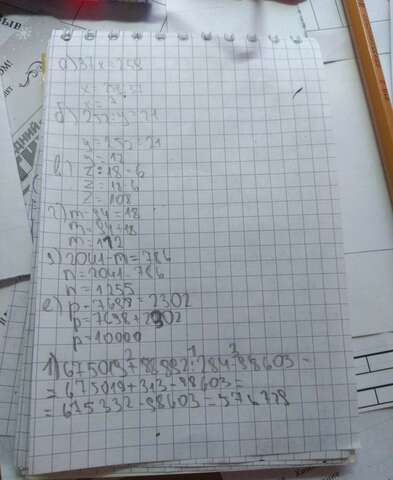 а) 31x=248
x=248:31
x=8
б) 252:y=21
y=252:21
y=12
в) z:18=6
z=18·6
z=108
г) m-94=18
m=94+18
m=112
д) 2041-n=786
n=2041-786
n=1255
е) p-7698=2302
p=7698+2302
p=10000
1) 675019+88892:284-98603=
=675019+313-98603=
=675332-98603=576729